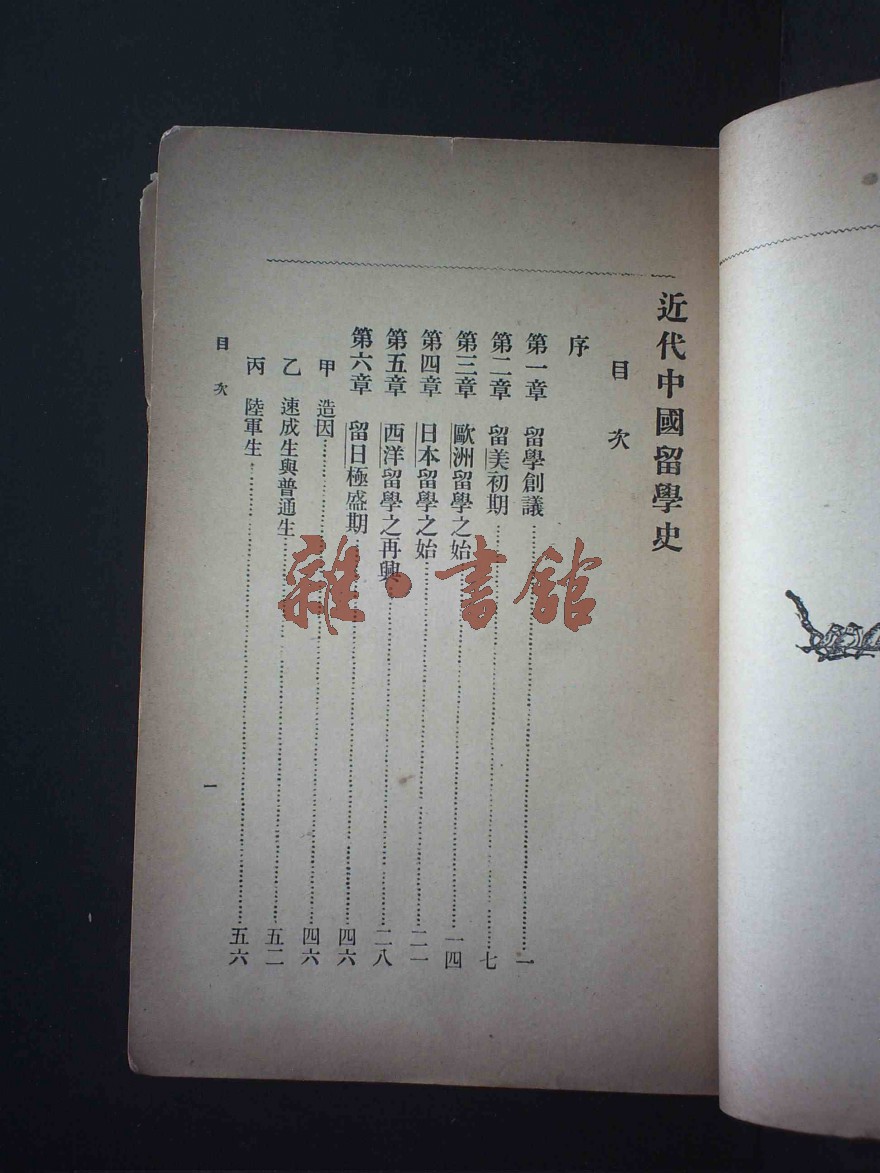 近代中國留學史
目次
序
第一章 留學創議……一
第二章 留美初期……七
第三章 歐洲留學之始……一四
第四章 日本留學之始……二一
第五章 西洋留學之再興……二八
第六章 留日極盛期……四六
甲 造因……四六
乙 速成生與普通生……五二
丙 陸軍生……五六
目次
一
雜·書館